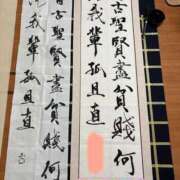 古聖賢盡貧賤何
我輩孤且直
古聖賢盡貧賤何
況我輩孤且直